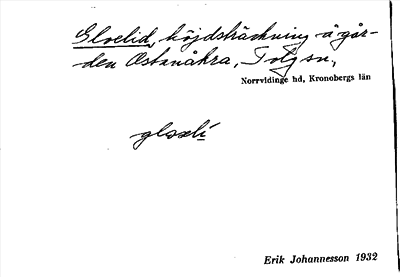 Gloelid, höjdsträckning å går-
den Östanåkra, Tolg sn,
Norrvidinge hd, Kronobergs län
Erik Johannesson 1932